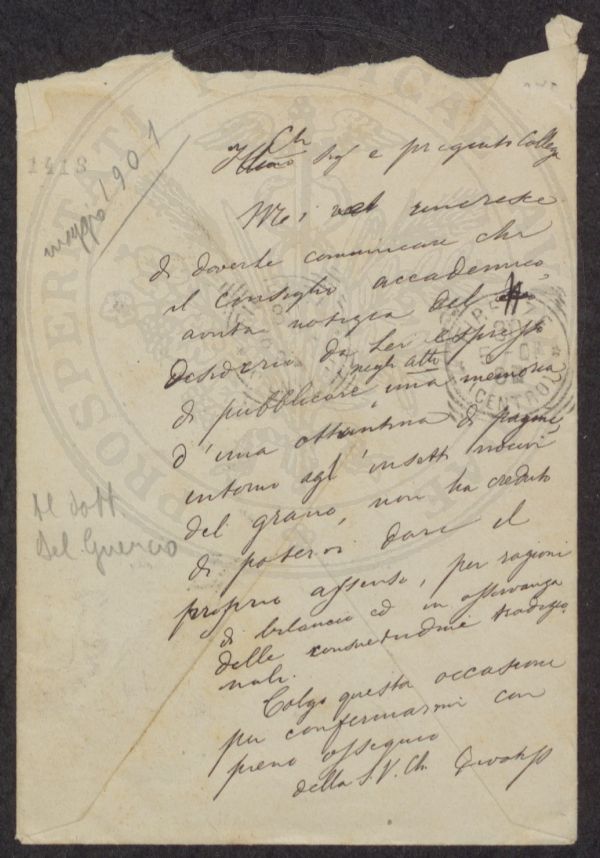 1413
maggio 1901
Ch
Sig e pregiato Collega
Mi rincresce
di doverle comunicare che
il Consiglio accademico
avuta notizia del
desiderio da Lei espresso
negli atti
di pubblicare una memoria
d'una ottantina di pagine
intorno agl'insetti nocivi
del grano, non ha creduto
di potervi dare il
proprio assenso, per ragioni
di bilancio ed in osservanza
delle consuetudini tradizio
nali.
Colgo questa occasione
per confermarmi con
pieno ossequio
della S. V. Ch. Devotiss
Al dott
Del Guercio
CENTRO
PROSPERITATI PUBLICAE